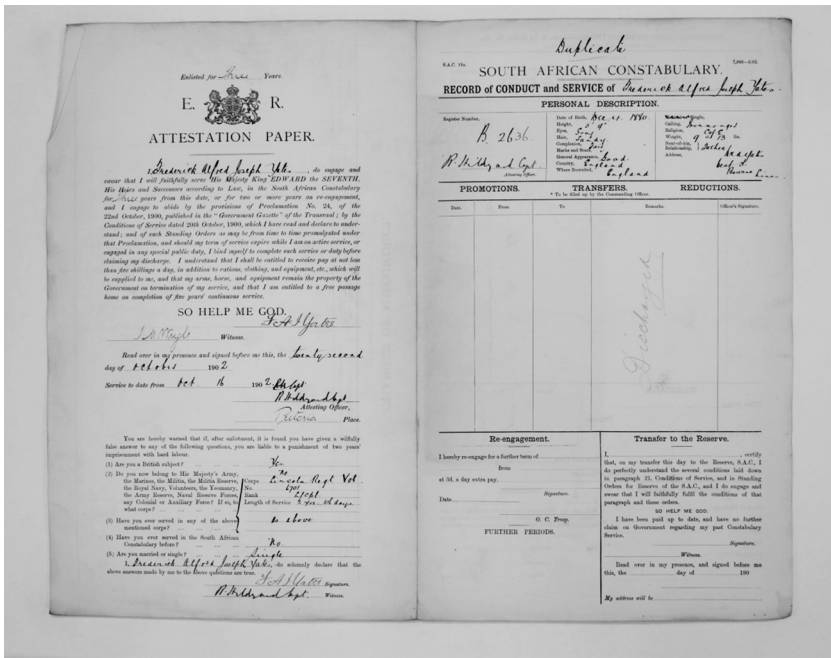 Enlisted for Three Years.
E. R.
ATTESTATION PAPER.
I, Frederick Alfred Joseph Yates, do engage and
swear that I will faithfully serve His Majesty King EDWARD the SEVENTH,
His Heirs and Successors according to Law, in the South African Constabulary
for three years from this date, or for two or more years on re-engagement,
and I engage to abide by the provisions of Proclamation No. 24, of the
22nd October, 1900, published in the "Government Gazette" of the Transvaal; by the
Conditions of Service dated 20th October, 1900, which I have read and declare to under-
stand; and of such Standing Orders as may be from time to time promulgated under
that Proclamation, and should my term of service expire while I am on active service, or
engaged in any special public duty, I bind myself to complete such service or duty before
claiming my discharge. I understand that I shall be entitled to receive pay at not less
than five shillings a day, in addition to rations, clothing, and equipment, etc., which will
be supplied to me, and that my arms, horse, and equipment remain the property of the
Government on termination of my service, and that I am entitled to a free passage
home on completion of five years' continuous service.
SO HELP ME GOD.
F A J Yates
Witness.
Read over in my presence and signed before me this, the twenty second
day of October 1902
Service to date from Oct 16 1902
R Hildyard Capt
Attesting Officer,
Pretoria Place.
You are hereby warned that if, after enlistment, it is found you have given a wilfully
false answer to any of the following questions, you are liable to a punishment of two years'
imprisonment with hard labour.
(1) Are you a British subject? Yes
(2) Do you now belong to His Majesty's Army, No
the Marines, the Militia, the Militia Reserve, Corps Lincoln Regt Vol
the Royal Navy, Volunteers, the Yeomanry, No.
the Army Reserve, Naval Reserve Forces, Rank
any Colonial or Auxiliary Force? If so, to Length of Service
what corps?
(3) Have you ever served in any of the above as above
mentioned corps?
(4) Have you ever served in the South African
Constabulary before? No
(5) Are you married or single? Single
I, Frederick Alfred Joseph Yates, do solemnly declare that the
above answers made by me to the above questions are true.
F A J Yates Signature.
R Hildyard Capt. Witness.
Duplicate
S.A.C. 18a.
SOUTH AFRICAN CONSTABULARY.
RECORD of CONDUCT and SERVICE of Frederick Alfred Joseph Yates
PERSONAL DESCRIPTION.
Register Number,
B. 2636
R Hildyard Capt
Attesting Officer.
Date of Birth, Dec 1880
Height, 5' 9"
Eyes, Grey
Hair,
Complexion,
Marks and Scars,
General Appearance, Good
Country, England
Where Recruited, England
Single,
Calling,
Religion, C of E
Weight, 9 st 13 lbs.
Next-of-kin,
Relationship, Mother
Address,
PROMOTIONS. TRANSFERS. REDUCTIONS.
* To be filled up by the Commanding Officer.
Date. From To Remarks Officer's Signature.
Discharged
Re-engagement.
I hereby re-engage for a further term of
from
at 3d. a day extra pay.
Signature.
Date
O. C. Troop.
FURTHER PERIODS.
Transfer to the Reserve.
I, , certify
that, on my transfer this day to the Reserve, S.A.C., I
do perfectly understand the several conditions laid down
in paragraph 21, Conditions of Service, and in Standing
Orders for Reserve of the S.A.C., and I do engage and
swear that I will faithfully fulfil the conditions of that
paragraph and these orders.
SO HELP ME GOD.
I have been paid up to date, and have no further
claim on Government regarding my past Constabulary
Service.
Signature.
Witness.
Read over in my presence, and signed before me
this, the day of 190
My address will be